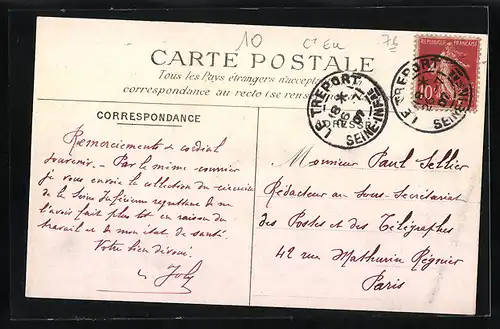 10 Cⁿ Eu 76
CARTE POSTALE
Tous les Pays étrangers n'accepte
correspondance au recto (se rens
REPUBLIQUE FRANÇAISE
10
LE TREPORT
SEINE INFRE
LE TREPORT
SEINE
CORRESPONDANCE
ADRESSE
Remerciements & cordial
souvenir. - Par le même courrier
je vous envoie la collection du
de la Seine Inférieure regrettant de ne
l'avoir fait plus tôt en raison du
travail et de mon état de santé.
Votre bien dévoué.
Joly
Monsieur Paul Sellier
Rédacteur au Sous-Secrétariat
des Postes et des Télégraphes
42 rue Mathurin Régnier
Paris